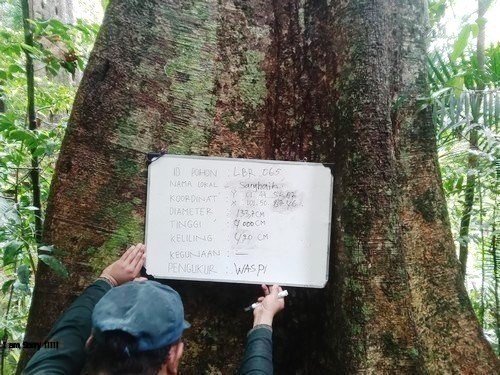 ID POHON : LBR 065
NAMA LOKAL :
KOORDINAT : Y
X
DIAMETER : 133,7 CM
TINGGI : 4000 CM
KELILING : 420 CM
KEGUNAAN : —
PENGUKUR : WASPI